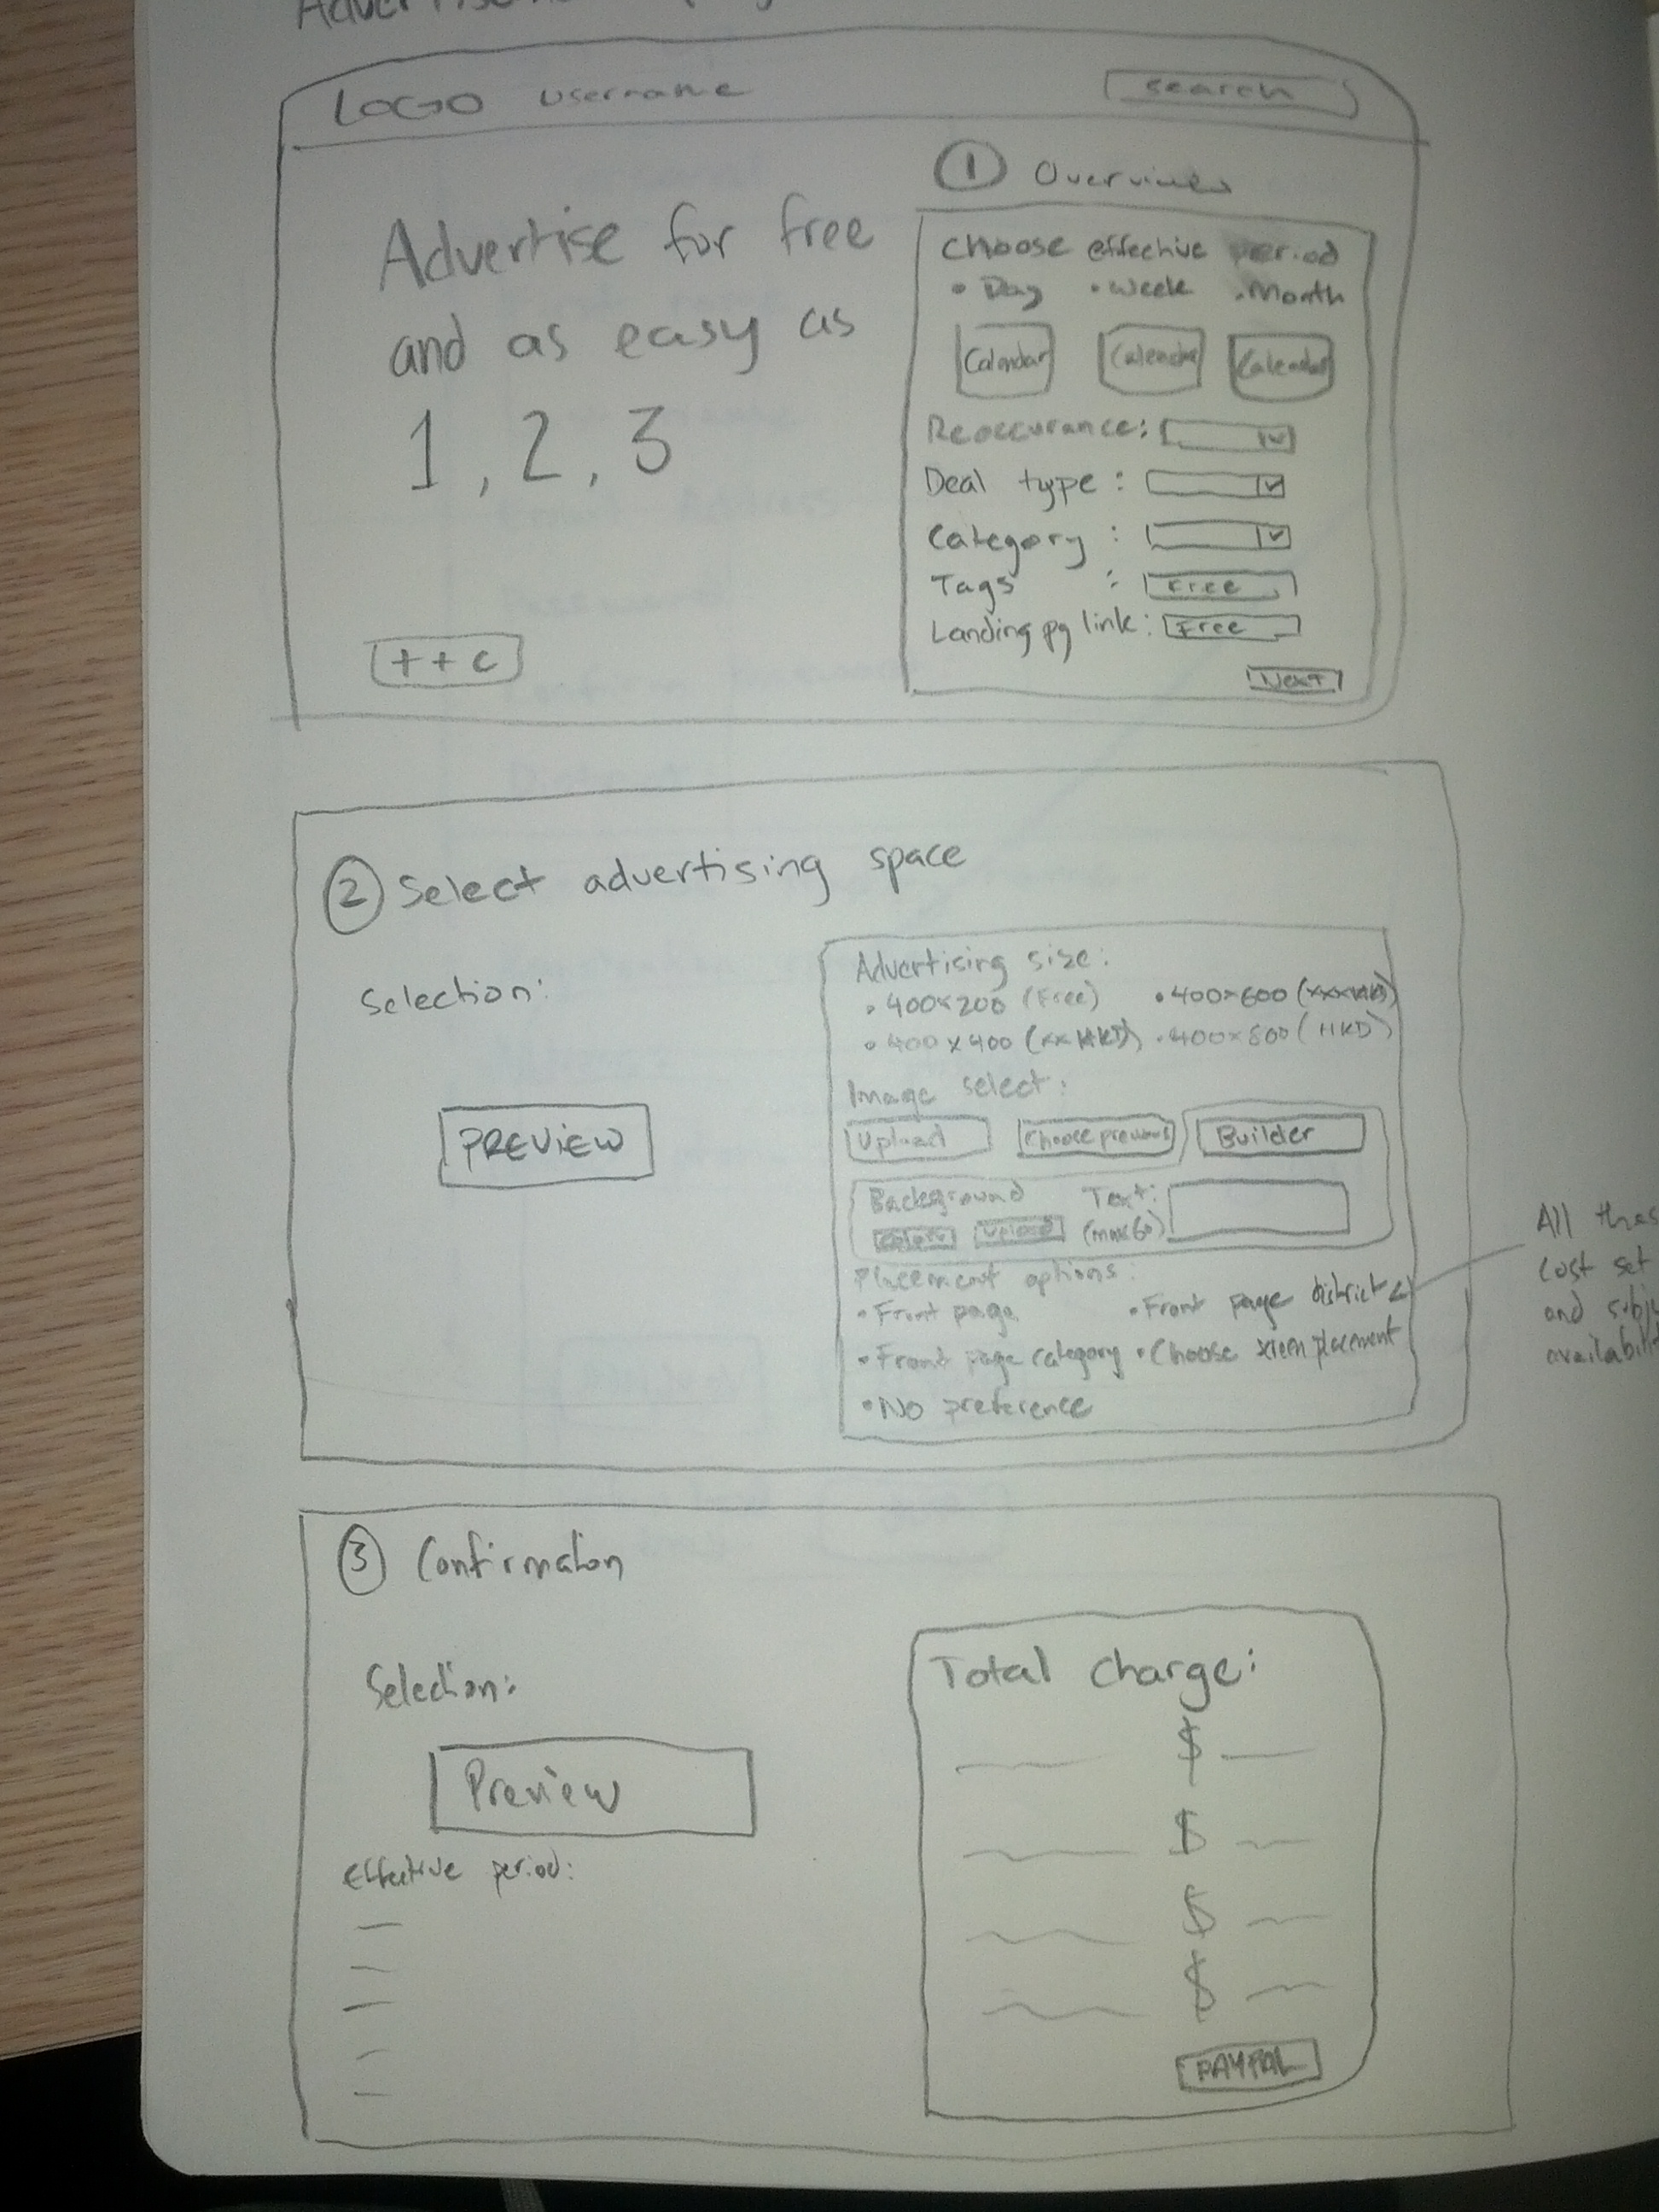 LOGO username search
Advertise for free
and as easy as
1, 2, 3
++c
1 Overview
Choose effective period
• Day • Week • Month
Calendar Calendar Calendar
Reoccurance:
Deal type :
Category :
Tags : Free
Landing pg link: Free
Next
2 Select advertising space
Selection:
PREVIEW
Advertising size:
• 400x200 (Free) • 400x600 (xxxHKD)
• 400x400 (xx HKD) • 400x800 (HKD)
Image select:
Upload Choose previous Builder
Background Text:
colors upload (max 60)
Placement options:
• Front page • Front page district
• Front page category • Choose screen placement
• No preference
All
cost set
and
3 Confirmation
Selection:
Preview
Effective period:
Total charge:
$
$
$
$
PAYPAL